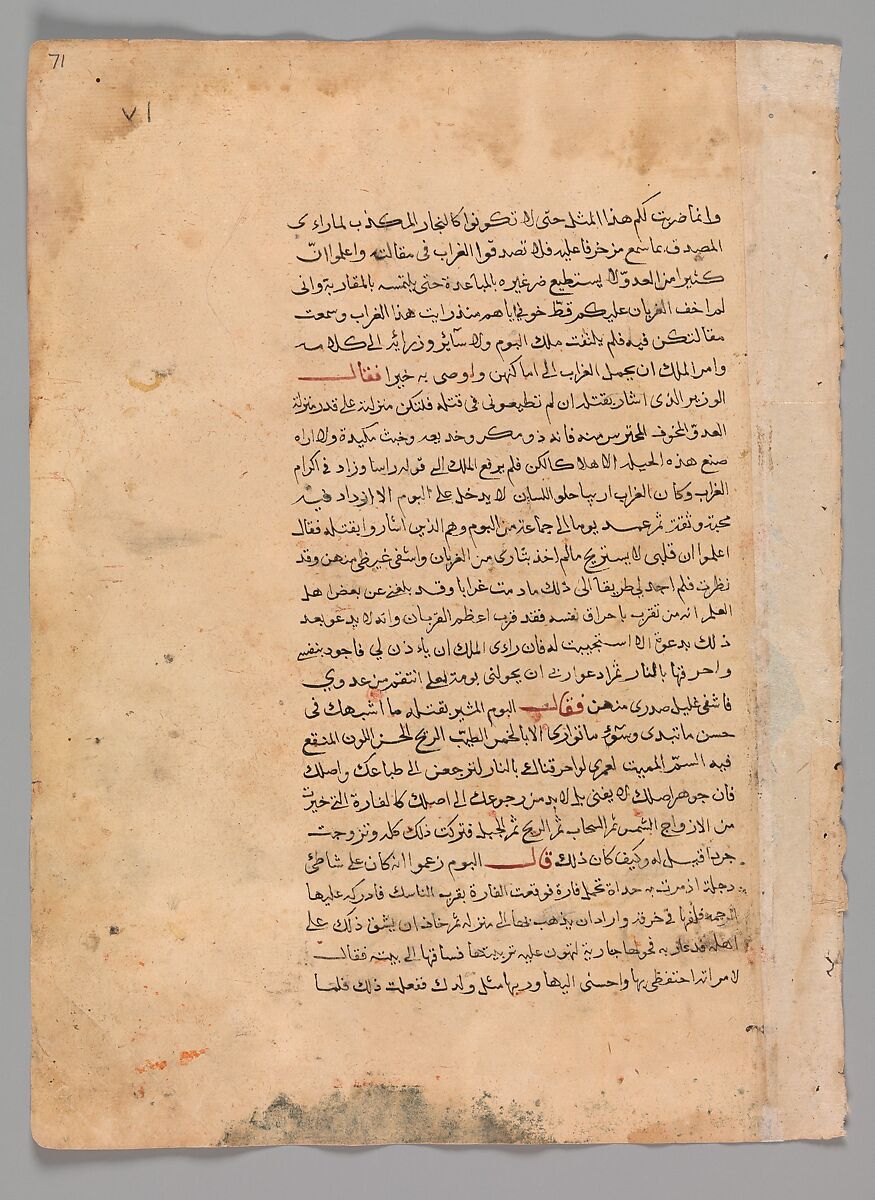 71
٧١
وانما ضربت لكم هذا المثل حتى لا تكونوا كالنجار المكذب لما راى
المصدق بما سمع مزخرفا عليه فلا تصدقوا الغراب فى مقالته واعلموا انّ
كثيرا من العدوّ لا يستطيع ضر غيره بالمباعدة حتى يلتمسه بالمقاربة وانى
لم اخف الغربان عليكم قطّ خوفى اياهم منذ رايت هذا الغراب وسمعت
مقالتكن فيه فلم يلتفت ملك البوم ولا سآير وزرائه الى كلامه
وامر الملك ان يحمل الغراب الى اماكنهن واوصى به خيرا فقال
الوزير الذى اشار بقتله ان لم تطيعونى فى قتله فلتكن منزلته على قدر منزلة
العدوّ المخوف المحترس منه فانه ذو مكر وخديعه وخبث مكيدة ولا اراه
صنع هذه الحيله الا هلاكا لكن فلم يرفع الملك الى قوله راسا وزاد فى اكرام
الغراب وكان الغراب اريبا حلو اللسان لا يدخل على البوم الا ازداد فيه
محبة وثقة ثم عمد يوما الى جماعة من البوم وهم الذين اشاروا بقتله فقال
اعلموا ان قلبى لا يستريح مالم اخذ بثارى من الغربان واشفى غيظى منهن وقد
نظرت فلم اجد لى طريقا الى ذلك ما دمت غرابا وقد بلغنى عن بعض اهل
العلم انه من تقرب باحراق نفسه فقد قرب اعظم القربان وانه لا يدعو بعد
ذلك بدعوة الا استجيبت له فان راى الملك ان ياءذن لى فاجود بنفسى
واحرقها بالنار ثم ادعوا ربى ان يحولنى بومة لعلى انتقم من عدوي
فاشفى غليل صدرى منهن فقال البوم المشير بقتله ما اشبهك فى
حسن ما تبدى وسوٓء ما توارى الا بالخمر الطيب الريح الحسن اللون المنقع
فيه السمّ المميت لعمرى لو احرقناك بالنار لترجعن الى طباعك واصلك
فان جوهر اصلك لا يفنى بل لا بد من رجوعك الى اصلك كالفارة التى خيرت
من الازواج الشمس ثم السحاب ثم الريح ثم الجبل فتركت ذلك كله وتزوجت
جردا قيل له وكيف كان ذلك قال البوم زعموا انه كان على شاطئ
دجلة اذ مرت به حداة تحمل فارة فوقعت الفارة بقرب الناسك فادركه عليها
الرحمه فلفها فى خرقة واراد ان يذهب بها الى منزله ثم خاف ان يشق ذلك على
اهله فدعا ربه فحولها جارية لتهون عليه تربيتها فساقها الى بيته فقال
لامراته احتفظى بها واحسنى اليها وربها مثل ولدك ففعلت ذلك فلما